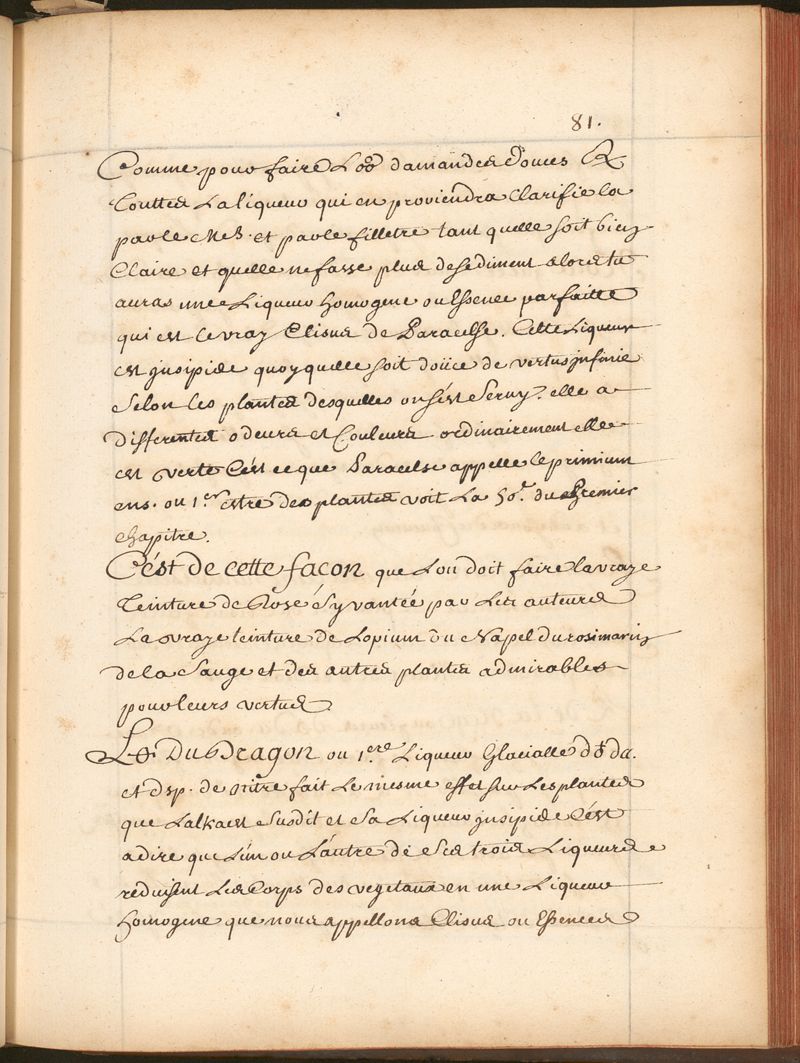 81.
Comme pour faire L'oo damandes douces &
Couttes La liqueur qui en proviendra Clarifie la
par le et par le filletre tant quelle soit bien
Claire et quelle ne fasse plus de sediment alors tu
auras une Liqueur homogene ou Essence parfaitte
qui est le vray Clisus de Paracelse. Cette Liqueur
est jnsipide quoy quelle soit douce de vertus jnfinie
Selon les plantes desquelles on s'est servy. elle a
differentes odeurs et Couleurs ordinairement elle
est verte C'est ce que Paracelse appelle le primium
ens. ou 1.er estre des plantes voit La 50.e du Premier
chapitre.
C'est de cette facon que Lon doit faire la vraye
Teinture de Rose sy vantée par Les auteurs
La vraye teinture de Lopium du Napel du rosmarin
de la Sauge et des autres plantes admirables
pour leurs vertus
Le Du Dragon ou 1.ere Liqueur Glacialle
et dsp. de nitre fait Le mesme effet sur Les plantes
que Lalkaest Susdit et Sa Liqueur jnsipide C'est
adire que L'un ou L'autre de Ses trois Liqueurs
reduisent Les Corps des vegetaux en une Liqueur
homogene que nous appellons Clisus ou Essences